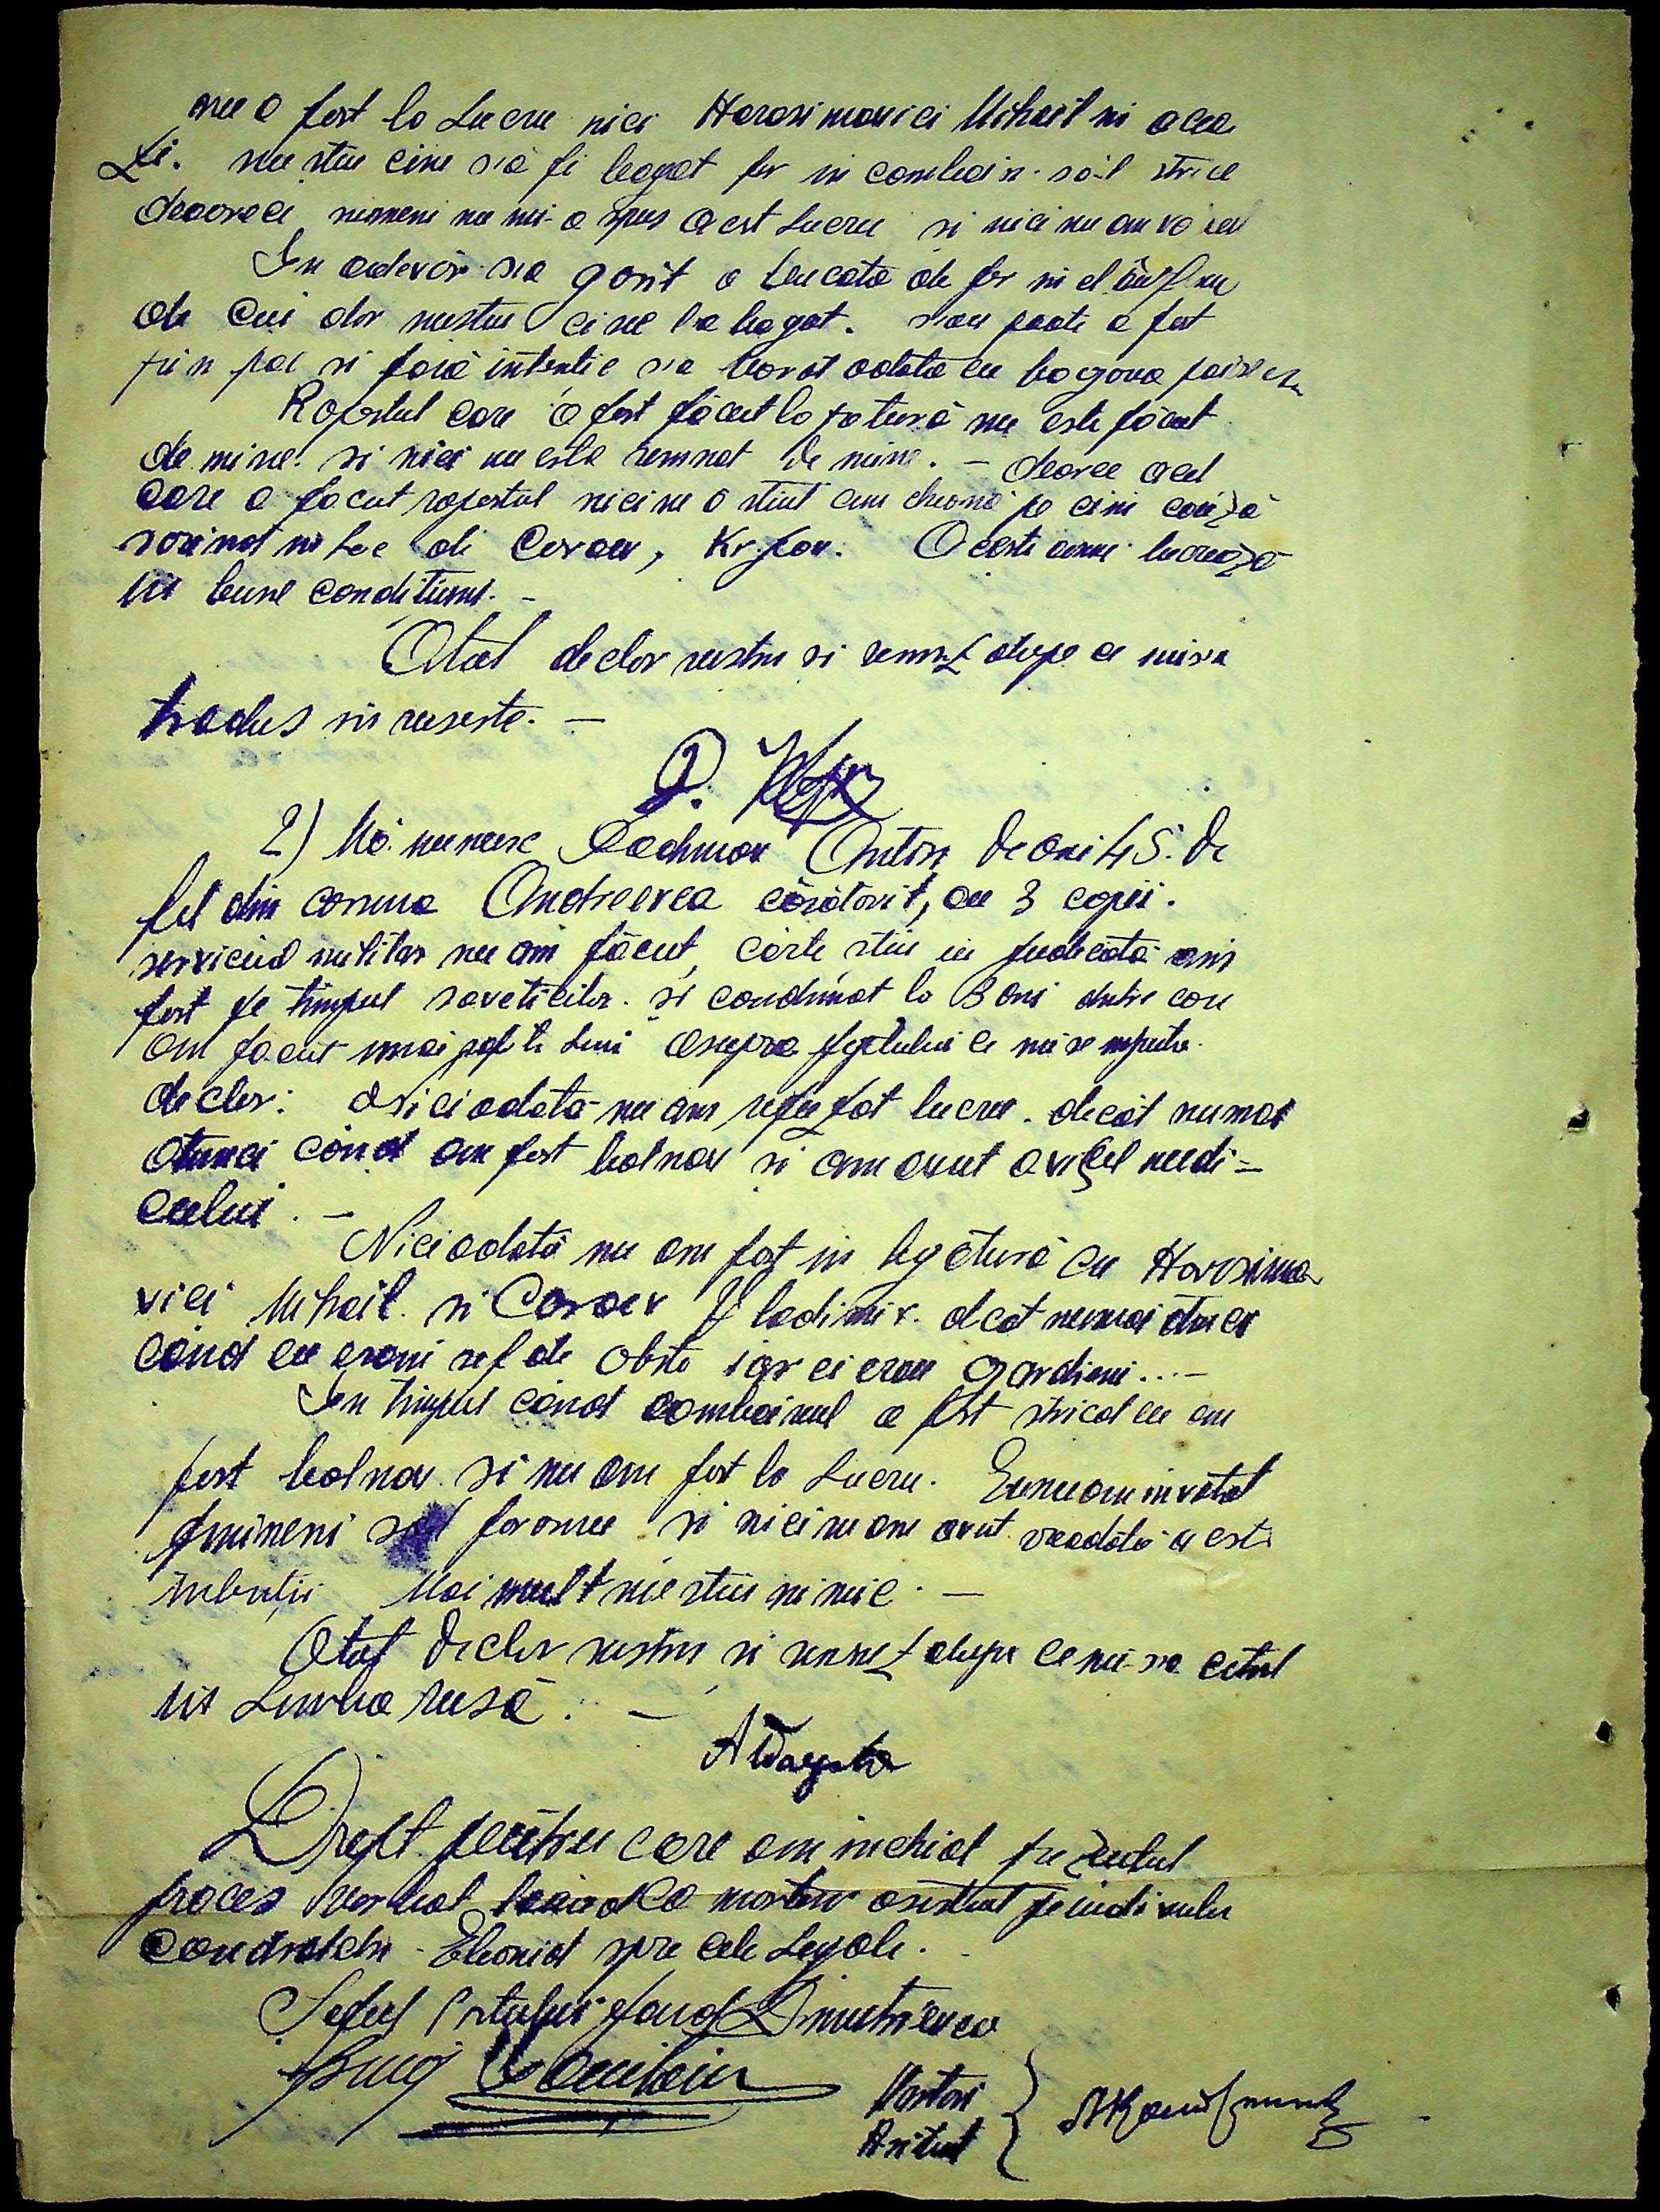 nu a fost la Lucru nici Harasimovici Mihail in acea
zi. nu stiu cine să fi bagat fer in combain să-l strice
deoarece nimeni nu mi-a spus acest Lucru si nici nu am vazut
In adevăr s-a gasit o bucata de fer in el
de cui dar nustiu cine l-a bagat. sau poate a fost
prin pae si fară intentie s-a bagat odata cu bagarea
Raportul care a fost făcut la fatură nu este făcut
de mine. si nici nu este semnat de mine. - deoarece acel
care a facut raportul nici nu a stiut cum cheamă pe cini
in Loc de Caraev, Acesti oameni lucrează
in bune conditiuni. -
Atat declar sustin si semnez dupe ce mi sa
tradus in ruseste. -
2) Mă numesc Anton de ani 45. de
fel din comuna Andreevca căsătorit, am 3 copii.
serviciul militar nu am făcut, carte stiu in judecată am
fost pe timpul sovieticilor. si condamnat la 3 ani dintre care
am facut numai sapte Luni asupra faptului ce mi se imputa
declar: Niciodată nu am refuzat lucru. decăt numai
atunci când am fost bolnav si am avut avizul medi-
cului. -
Niciodată nu am fost in legătură cu Harasimo
vici Mihail. si Caraev Vladimir. decat numai atunci
când eu eram sef de obste iar ei erau gardieni...-
In timpul când combainul a fost stricat eu am
fost bolnav si nu am fost la Lucru. Eu nu am invătat
pe nimeni să fărame si nici nu am avut vreodată aceste
intentii Mai mult nu stiu nimic. -
Atat declar sustin si semnez dupe ce mi-s-a citit
in Limba rusă. -
Drept pentru care am inchiat prezentul
proces verbal luând ca martor asistent pe individul
Leonid spre cele Legale.
Seful Postului Jand Dimitrievca
Martori
Asistent